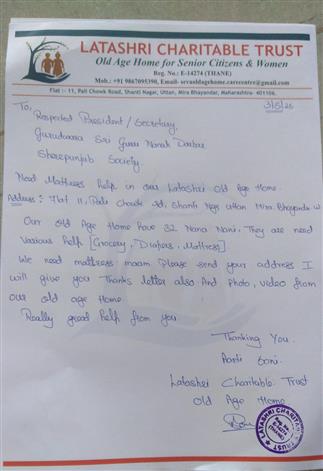 LATASHRI CHARITABLE TRUST
Old Age Home for Senior Citizens & Women
Reg. No.: E-14274 (THANE)
Mob.: +91 9867095390, Email- srvsoldagehome.carecentre@gmail.com
Flat :- 11, Pali Chowk Road, Shanti Nagar, Uttan, Mira Bhayandar, Maharashtra- 401106.
3/5/25
To,
Respected President / Secretary,
Gurudwara Sri Guru Nanak Darbar
Sherepunjab Society.
Need Mattress help in our Latashri Old Age Home.
Address: Flat 11, Pali Chowk Rd, Shanti Ngr Uttan Mira Bhayander W
Our old Age Home have 32 Nana Nani. They are need
Various help [Grocery, Diapers, Mattress]
We need mattress maam. Please send your address I
will give you Thanks letter also And photo, video from
our old age Home.
Really great help from you
Thanking You.
Aarti Soni.
Latashri Charitable Trust
Old Age Home
LATASHRI CHARITABLE TRUST
Reg. No.
E-14274
(THANE)